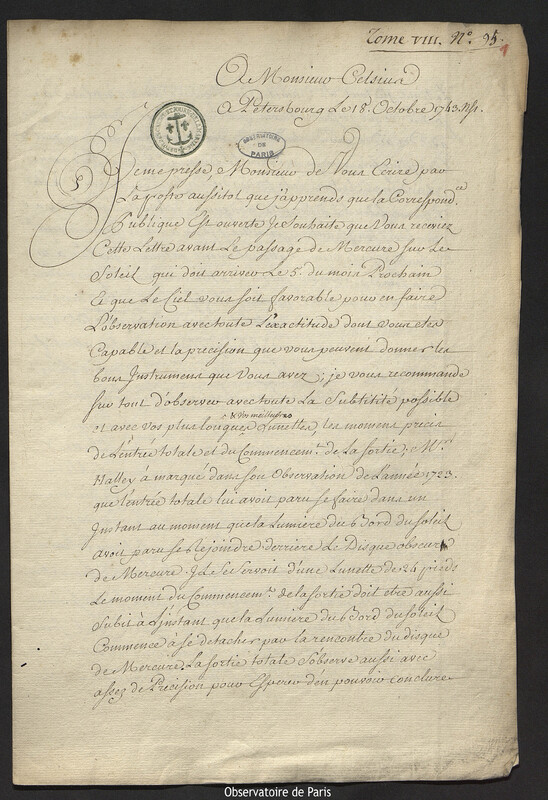 Tome VIII. N.º 95
A Monsieur Celsius
A Petersbourg Le 18. Octobre 1743. NSt.
OBSERVATOIRE
DE
PARIS
Je me presse, Monsieur de Vous Ecrire par
La poste aussitot que j'apprends que la Correspond.ce
Publique Est ouverte Je Souhaite que Vous receviez
Cette Lettre avant Le passage de Mercure sur Le
Soleil qui doit arriver Le 5.e du mois Prochain
Et que Le Ciel vous soit favorable pour en faire
L'observation avec toute L'exactitude dont vous etes
Capable et la precision que vous peuvent donner les
bons Instrumens que Vous avez; je vous recommande
sur tout d'observer avec toute La Subtitité possible
& Vos meilleures
et avec vos plus longues Lunettes, les momens precis
de L'entrée totale et du Commencem.t de La sortie; M.r
Halley à marqué dans son Observation de L'année 1723.
que l'entrée totale lui avoit paru se faire dans un
Instant au moment que la Lumiere du Bord du soleil
avoit paru se Rejoindre derriere Le Disque obscur
de Mercure. Il se Servoit d'une Lunette de 24 pieds
Le moment du Commencem.t de la sortie doit etre aussi
Subit à L'instant que la Lumiere du Bord du Soleil
Commence à se detacher par la rencontre du disque
de Mercure. La sortie totale S'observe aussi avec
assez de Précision pour Esperer d'en pouvoir conclure
Observatoire de Paris